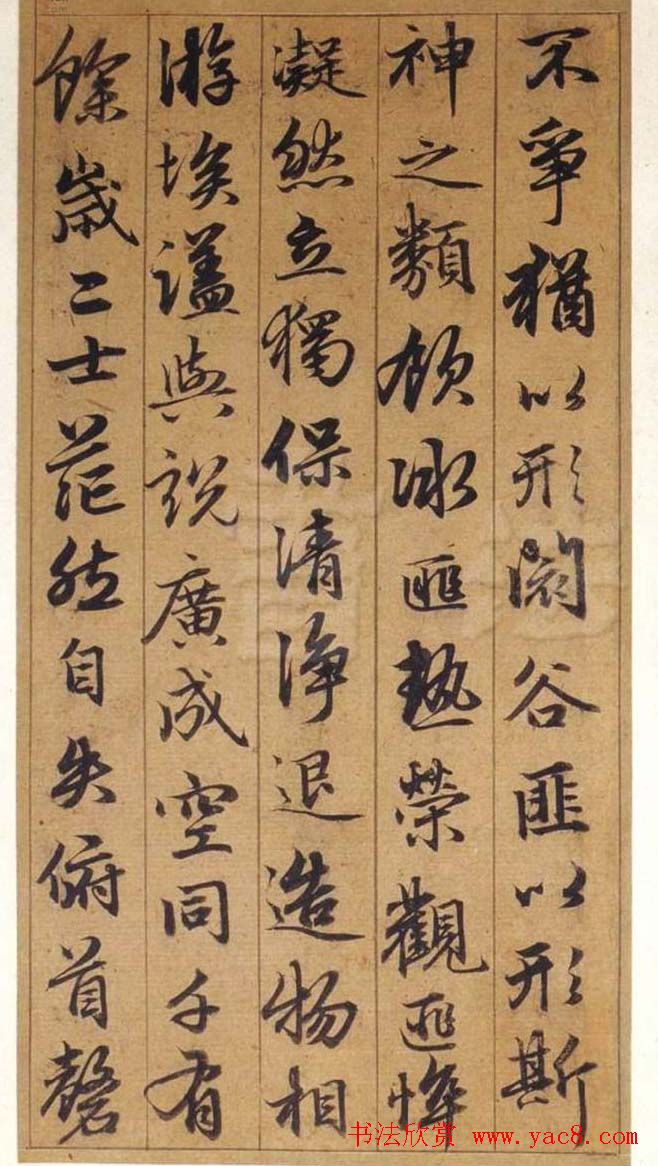 不爭猶以形谷匪以形斯
神之類飲冰匪熱榮觀匪悴
凝然立獨保清淨退造物相
游埃壒與說廣成空同千有
餘歲二士茫然自失俯首磬
书法欣赏 www.yac8.com